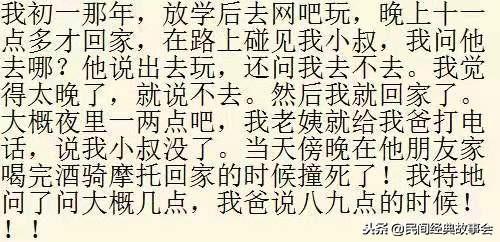 我初一那年，放学后去网吧玩，晚上十一
点多才回家，在路上碰见我小叔，我问他
去哪？他说出去玩，还问我去不去。我觉
得太晚了，就说不去。然后我就回家了。
大概夜里一两点吧，我老姨就给我爸打电
话，说我小叔没了。当天傍晚在他朋友家
喝完酒骑摩托回家的时候撞死了！我特地
问了问大概几点，我爸说八九点的时候！
！！
头条@民间经典故事会